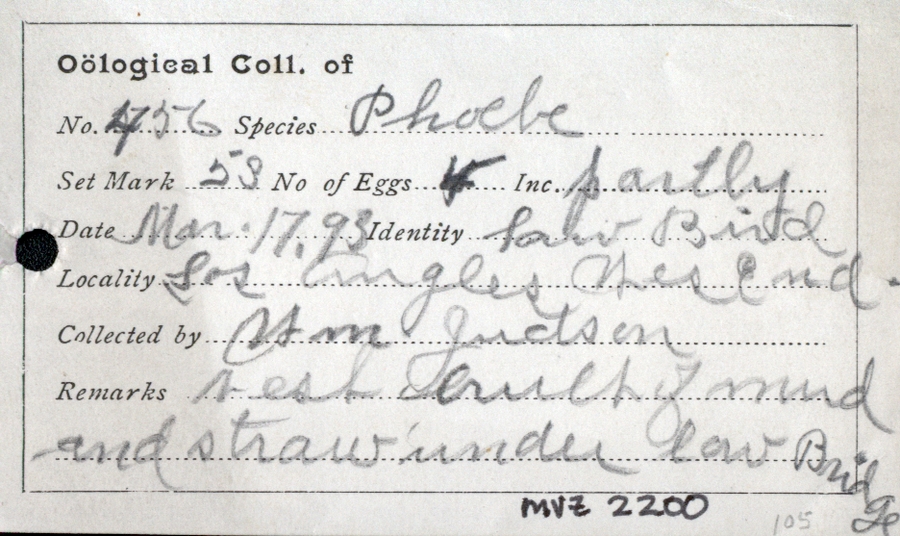 Oölogical Coll. of
No. 456 Species Phoebe
Set Mark 53 No of Eggs 4 Inc. partly
Date Mar. 17, 93 Identity Saw Bird
Locality Los Angles Wes End.
Collected by Wm Judson
Remarks nest built of mud
and straw under low Bridge
MVZ 2200
105